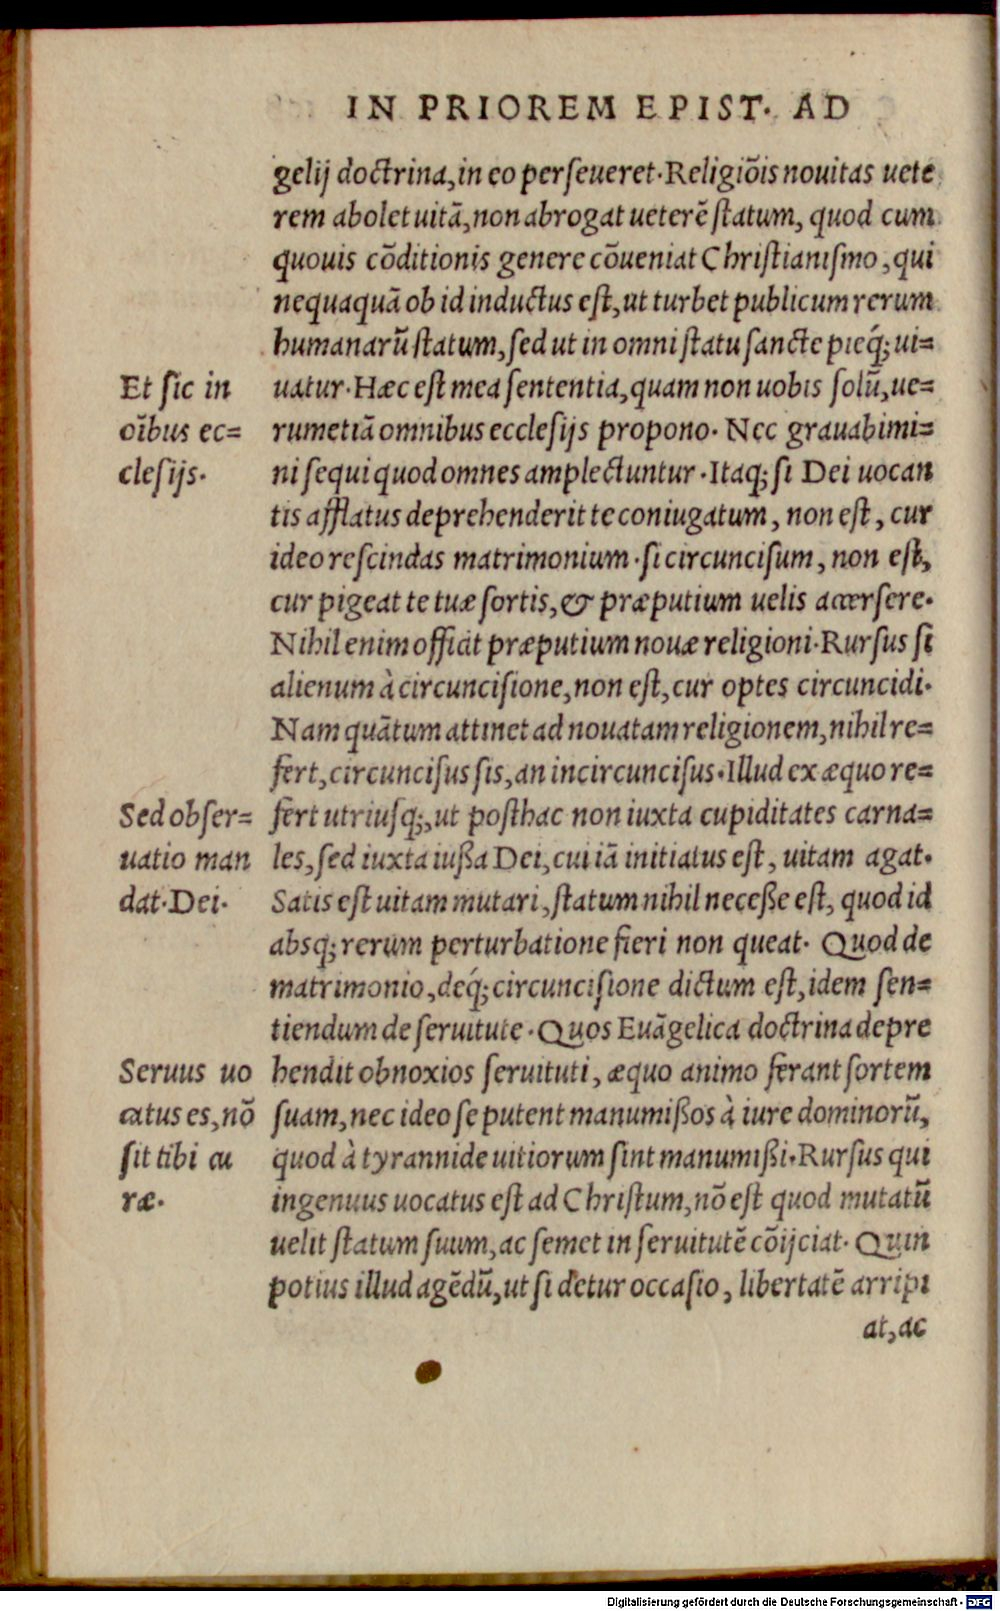 IN PRIOREM EPIST. AD
gelij doctrina, in eo perseueret. Religiõis nouitas uete
rem abolet uitã, non abrogat ueterẽ statum, quod cum
quouis cõditionis genere cõueniat Christianismo, qui
nequaquã ob id inductus est, ut turbet publicum rerum
humanarũ statum, sed ut in omni statu sancte pieq́; ui=
Et sic in
oĩbus ec=
clesijs.
uatur. Hæc est mea sententia, quam non uobis solũ, ue=
rumetiã omnibus ecclesijs propono. Nec grauabimi=
ni sequi quod omnes amplectuntur. Itaq; si Dei uocan
tis afflatus deprehenderit te coniugatum, non est, cur
ideo rescindas matrimonium. si circuncisum, non est,
cur pigeat te tuæ sortis, & præputium uelis accersere.
Nihil enim officit præputium nouæ religioni. Rursus si
alienum à circuncisione, non est, cur optes circuncidi.
Nam quãtum attinet ad nouatam religionem, nihil re=
fert, circuncisus sis, an incircuncisus. Illud ex æquo re=
Sed obser=
uatio man
dat. Dei.
fert utriusq;, ut posthac non iuxta cupiditates carna=
les, sed iuxta iußa Dei, cui iã initiatus est, uitam agat.
Satis est uitam mutari, statum nihil neceße est, quod id
absq; rerum perturbatione fieri non queat. Quod de
matrimonio, deq́; circuncisione dictum est, idem sen=
tiendum de seruitute. Quos Euãgelica doctrina depre
Seruus uo
catus es, nõ
sit tibi cu
ræ.
hendit obnoxios seruituti, æquo animo ferant sortem
suam, nec ideo se putent manumißos à iure dominorũ,
quod à tyrannide uitiorum sint manumißi. Rursus qui
ingenuus uocatus est ad Christum, nõ est quod mutatũ
uelit statum suum, ac semet in seruitutẽ cõijciat. Quin
potius illud agẽdũ, ut si detur occasio, libertatẽ arripi
at, ac
Digitalisierung gefördert durch die Deutsche Forschungsgemeinschaft - DFG